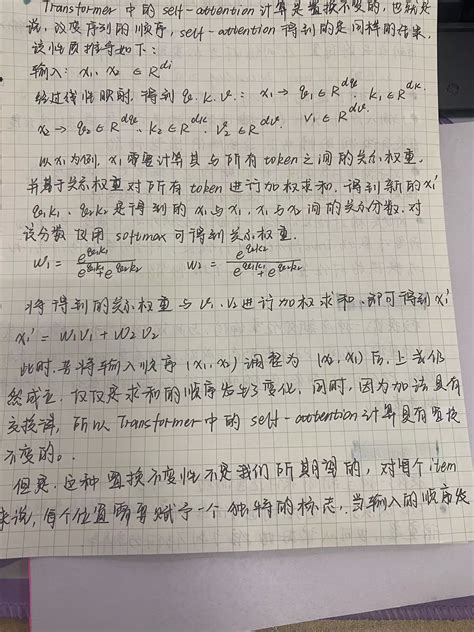 Transformer 中的 self-attention 计算是置换不变的, 也就是
说, 改变序列的顺序, self-attention 得到的是同样的结果.
该性质推导如下:
输入: x₁, x₂ ∈ R^di
经过线性映射, 得到 q. k. v.: x₁ → q₁ ∈ R^dq. k₁ ∈ R^dk. v₁ ∈ R^dv.
x₂ → q₂ ∈ R^dq. k₂ ∈ R^dk. v₂ ∈ R^dv.
以 x₁ 为例, x₁ 需要计算其与所有 token 之间的关系权重,
并基于关系权重对所有 token 进行加权求和. 得到新的 x₁'
q₁k₁、q₂k₂ 是得到的 x₁ 与 x₁, x₁ 与 x₂ 间的关系分数. 对
该分数使用 softmax 可得到关系权重.
w₁ = e^q₁k₁ / (e^q₁k₁ + e^q₂k₂) w₂ = e^q₂k₂ / (e^q₁k₁ + e^q₂k₂)
将得到的关系权重与 v₁. v₂ 进行加权求和. 即可得到 x₁'
x₁' = w₁v₁ + w₂v₂
此时. 若将输入顺序 (x₁, x₂) 调整为 (x₂, x₁) 后, 上式仍
然成立. 仅仅是求和的顺序发生了变化, 同时, 因为加法具有
交换律, 所以 Transformer 中的 self-attention 计算具有置换
不变的。
但是. 这种置换不变性不是我们所期望的, 对每个 item
来说, 每个位置需要赋予一个独特的标志, 当输入的顺序发